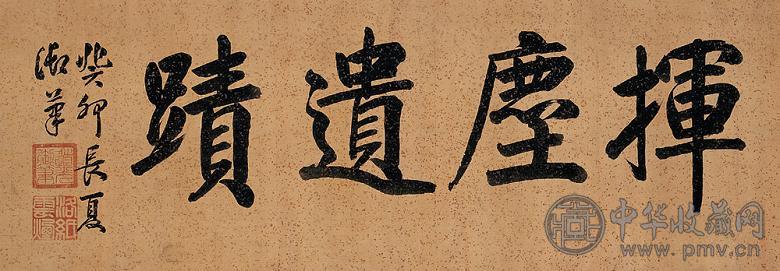 揮塵遺蹟
癸卯長夏
御筆
中华收藏网
www.pmv.cn